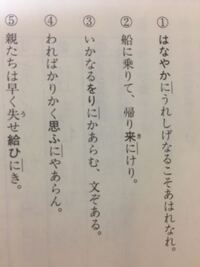 ① はなやかにうれしげなるこそあはれなれ。
② 船に乗りて、帰り来にけり。
③ いかなるをりにかあらむ、文ぞある。
④ わればかりかく思ふにやあらん。
⑤ 親たちは早く失せ給ひにき。